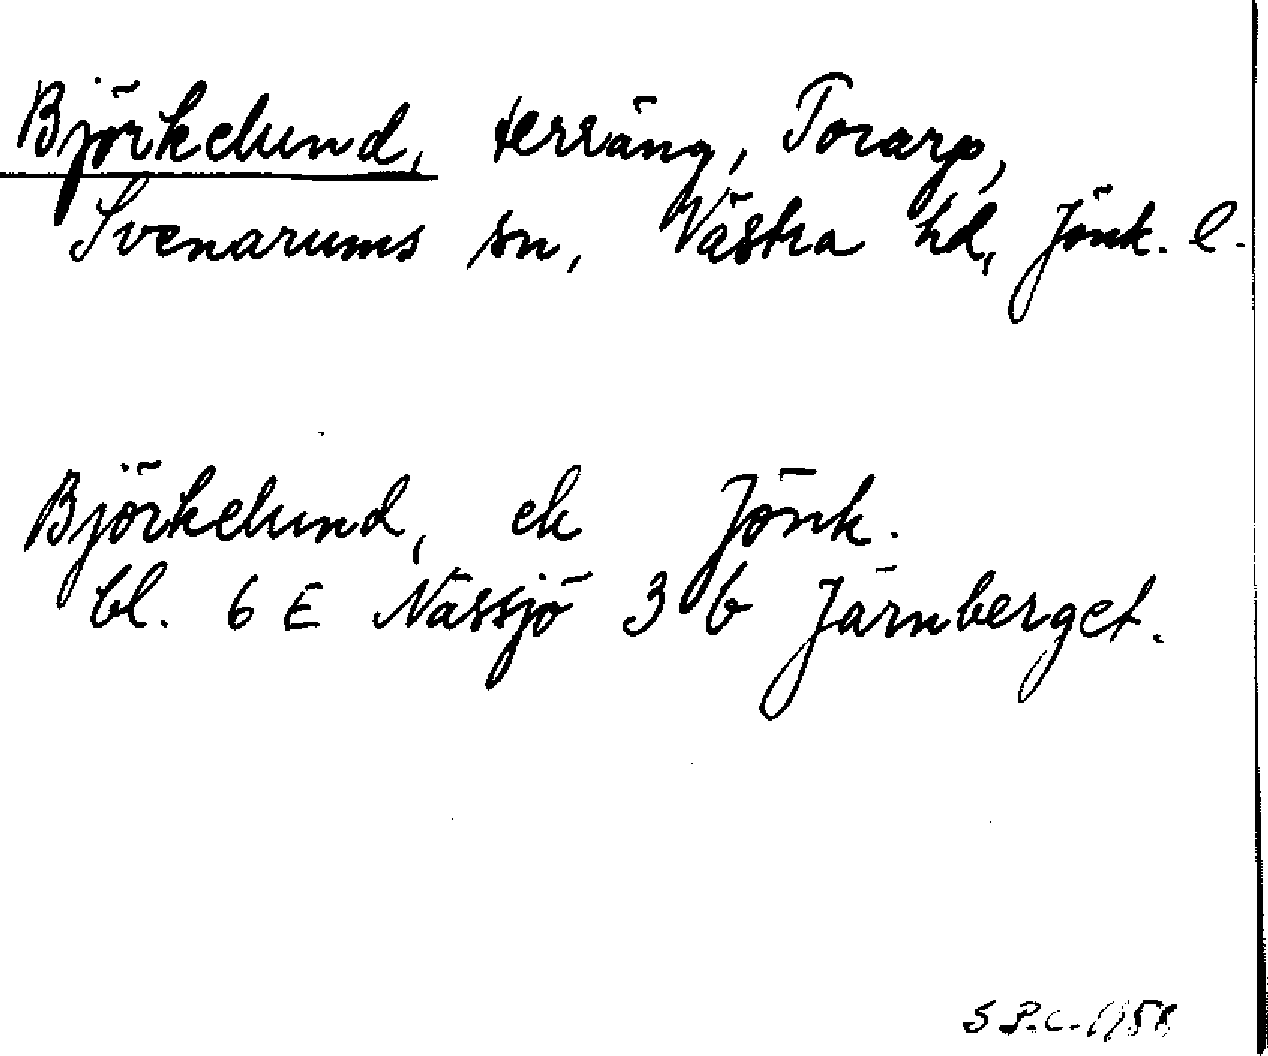 Björkelund, terräng, Torarp,
Svenarums sn, Västra hd, Jönk. l.
Björkelund, ek Jönk.
bl. 6 E Nässjö 3 b Järnberget.